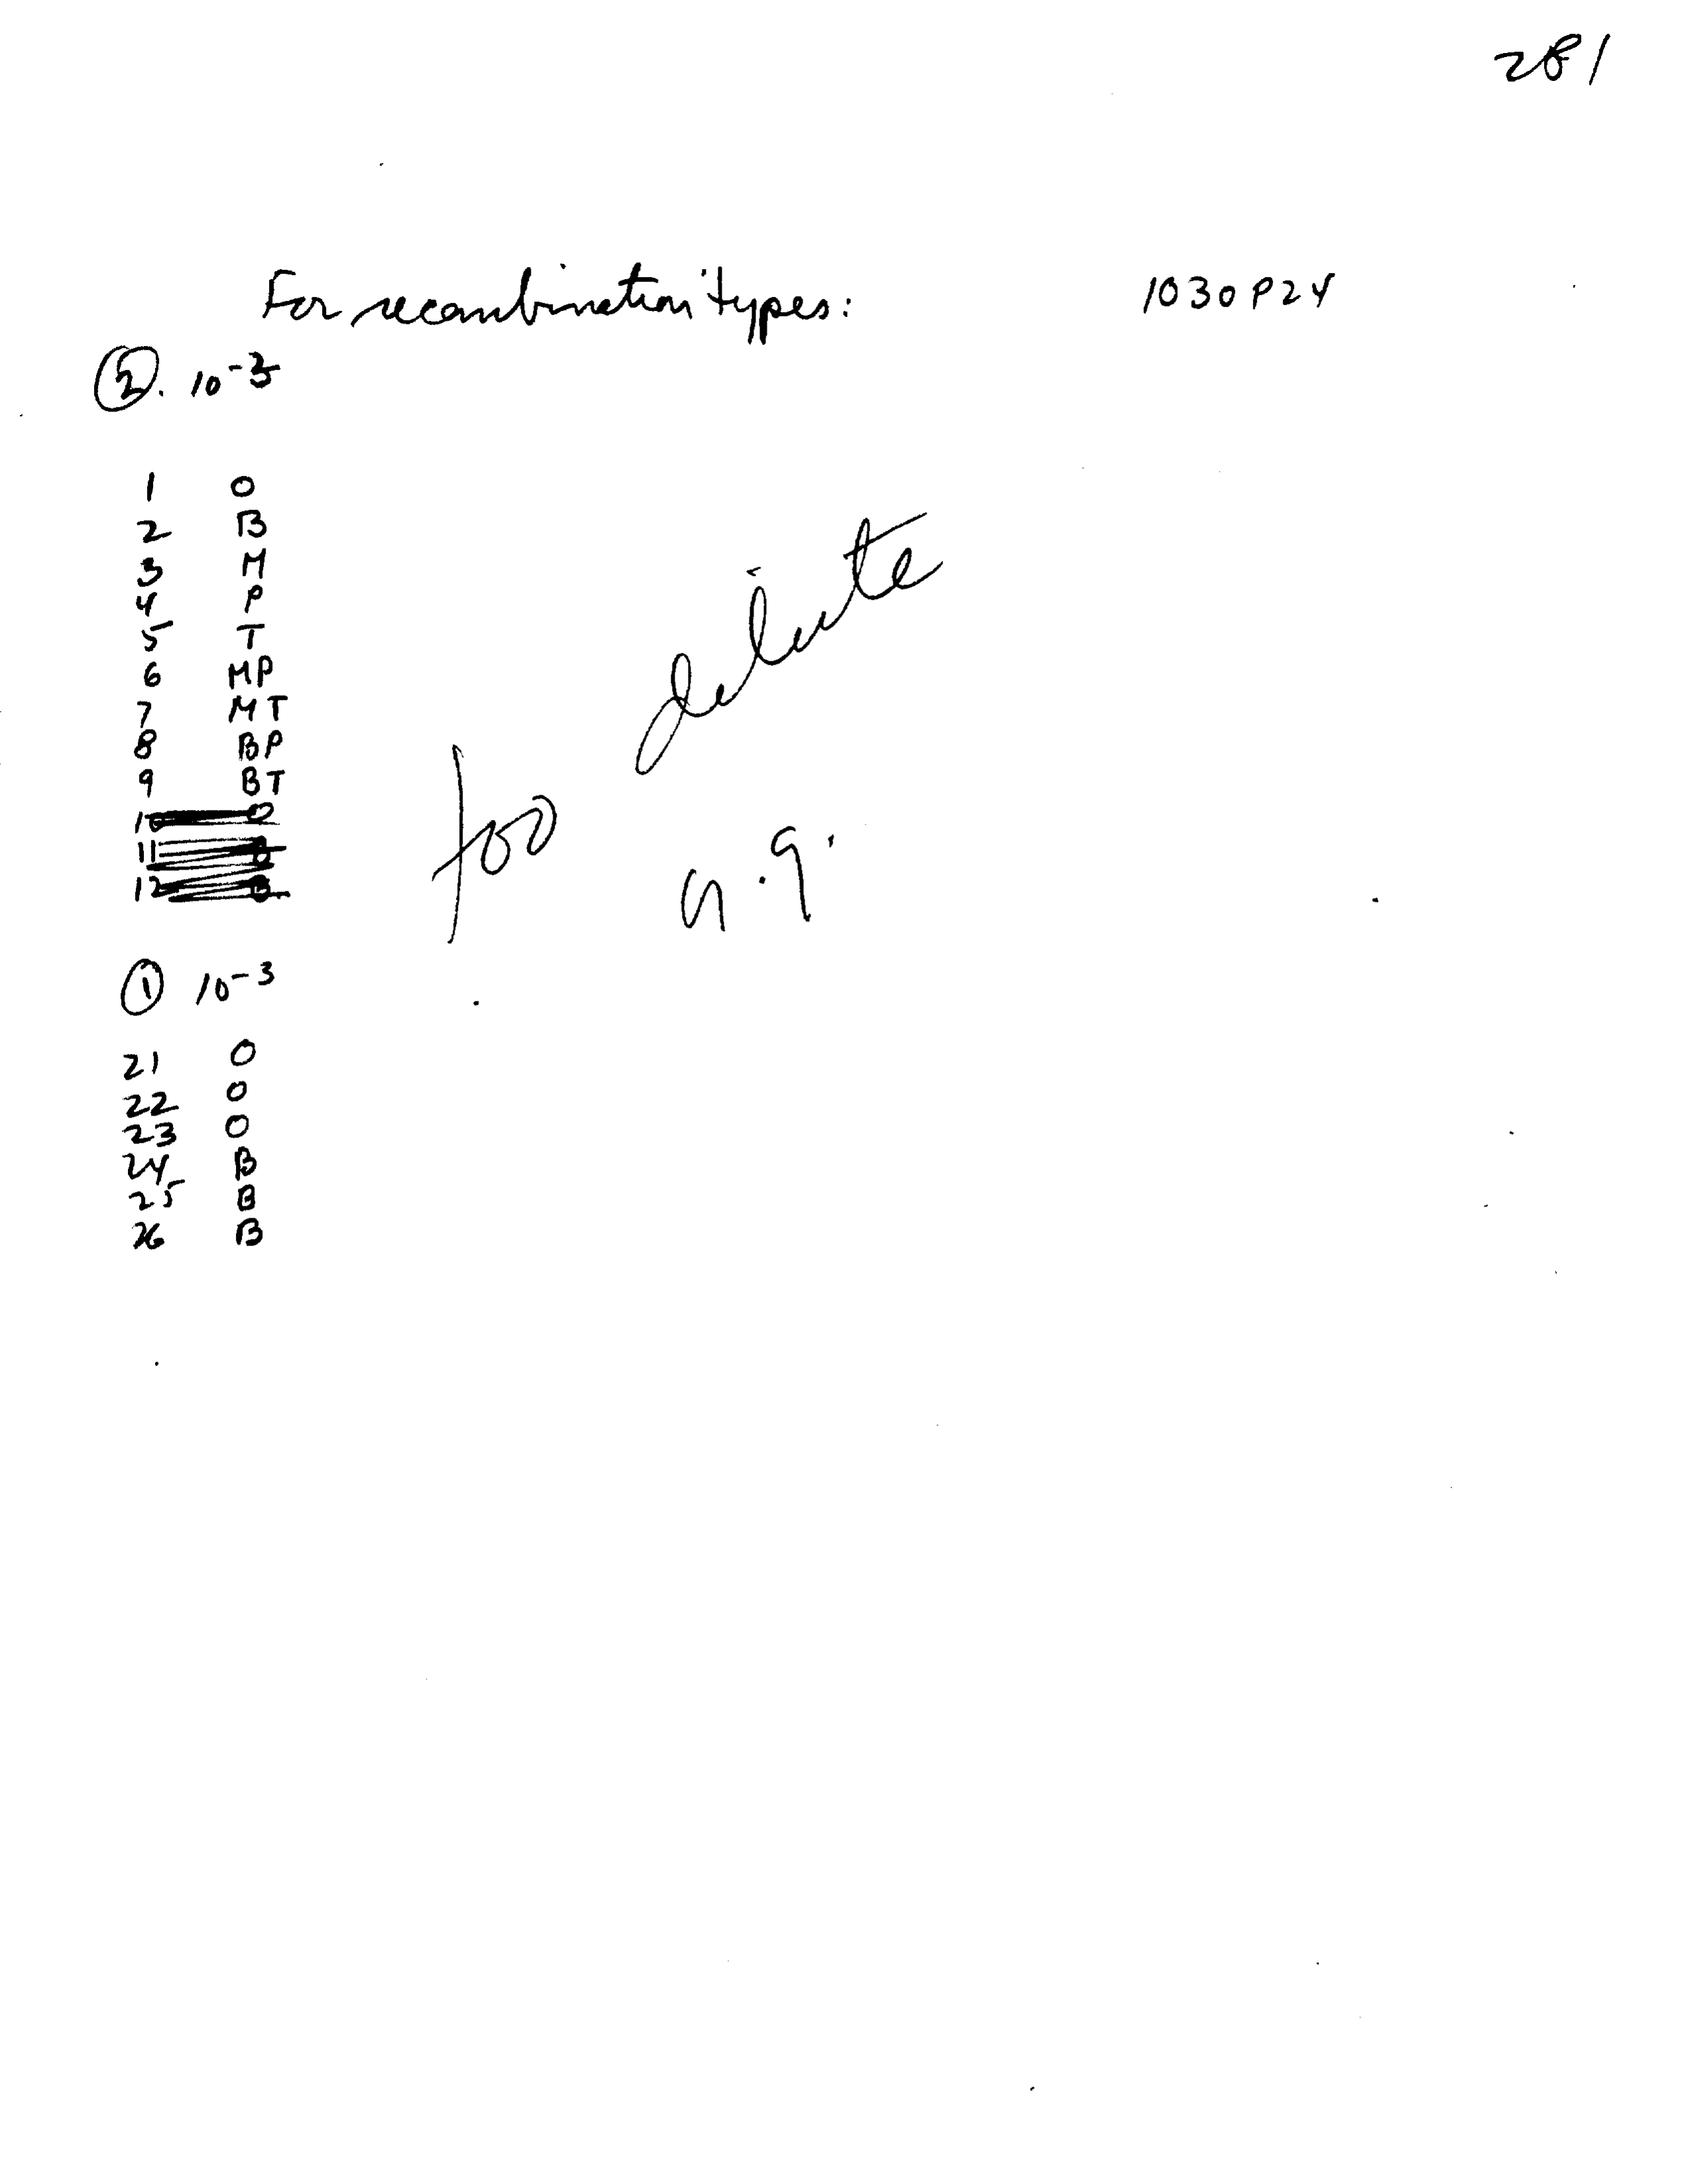 281
For recombination types: 1030P24
②. 10⁻³
1 O
2 B
3 M
4 P
5 T
6 MP
7 MT
8 BP
9 BT
10 O
11
12 B
too dilute
① 10⁻³
21 O
22 O
23 O
24 B
25 B
26 B